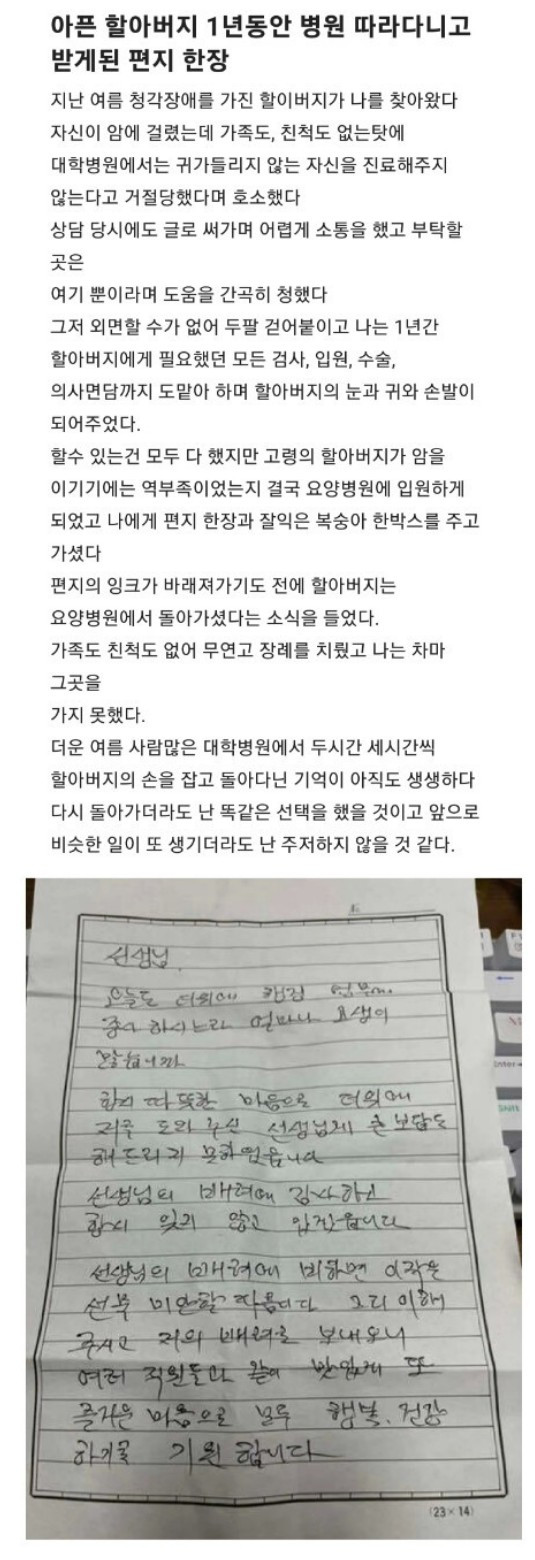 아픈 할아버지 1년동안 병원 따라다니고
받게된 편지 한장
지난 여름 청각장애를 가진 할이버지가 나를 찾아왔다
자신이 암에 걸렸는데 가족도, 친척도 없는탓에
대학병원에서는 귀가들리지 않는 자신을 진료해주지
않는다고 거절당했다며 호소했다
상담 당시에도 글로 써가며 어렵게 소통을 했고 부탁할
곳은
여기 뿐이라며 도움을 간곡히 청했다
그저 외면할 수가 없어 두팔 걷어붙이고 나는 1년간
할아버지에게 필요했던 모든 검사, 입원, 수술,
의사면담까지 도맡아 하며 할아버지의 눈과 귀와 손발이
되어주었다.
할수 있는건 모두 다 했지만 고령의 할아버지가 암을
이기기에는 역부족이었는지 결국 요양병원에 입원하게
되었고 나에게 편지 한장과 잘익은 복숭아 한박스를 주고
가셨다
편지의 잉크가 바래져가기도 전에 할아버지는
요양병원에서 돌아가셨다는 소식을 들었다.
가족도 친척도 없어 무연고 장례를 치뤘고 나는 차마
그곳을
가지 못했다.
더운 여름 사람많은 대학병원에서 두시간 세시간씩
할아버지의 손을 잡고 돌아다닌 기억이 아직도 생생하다
다시 돌아가더라도 난 똑같은 선택을 했을 것이고 앞으로
비슷한 일이 또 생기더라도 난 주저하지 않을 것 같다.
선생님
오늘도 더위에
하시느라 얼마나 고생이
많습니까
항시 따뜻한 마음으로 더위에
저를 도와주신 선생님께 큰 보답도
해드리지 못하였읍니다
선생님의 배려에 감사하고
항시 잊지 않고 있읍니다
선생님의 배려에 비하면 이작은
선부 미안할 따름니다 그리 이해
주시고 저의 배려로 보내오니
여러 직원들과 같이 맛있게 또
즐거운 마음으로 모두 행복, 건강
하기를 기원합니다
(23×14)